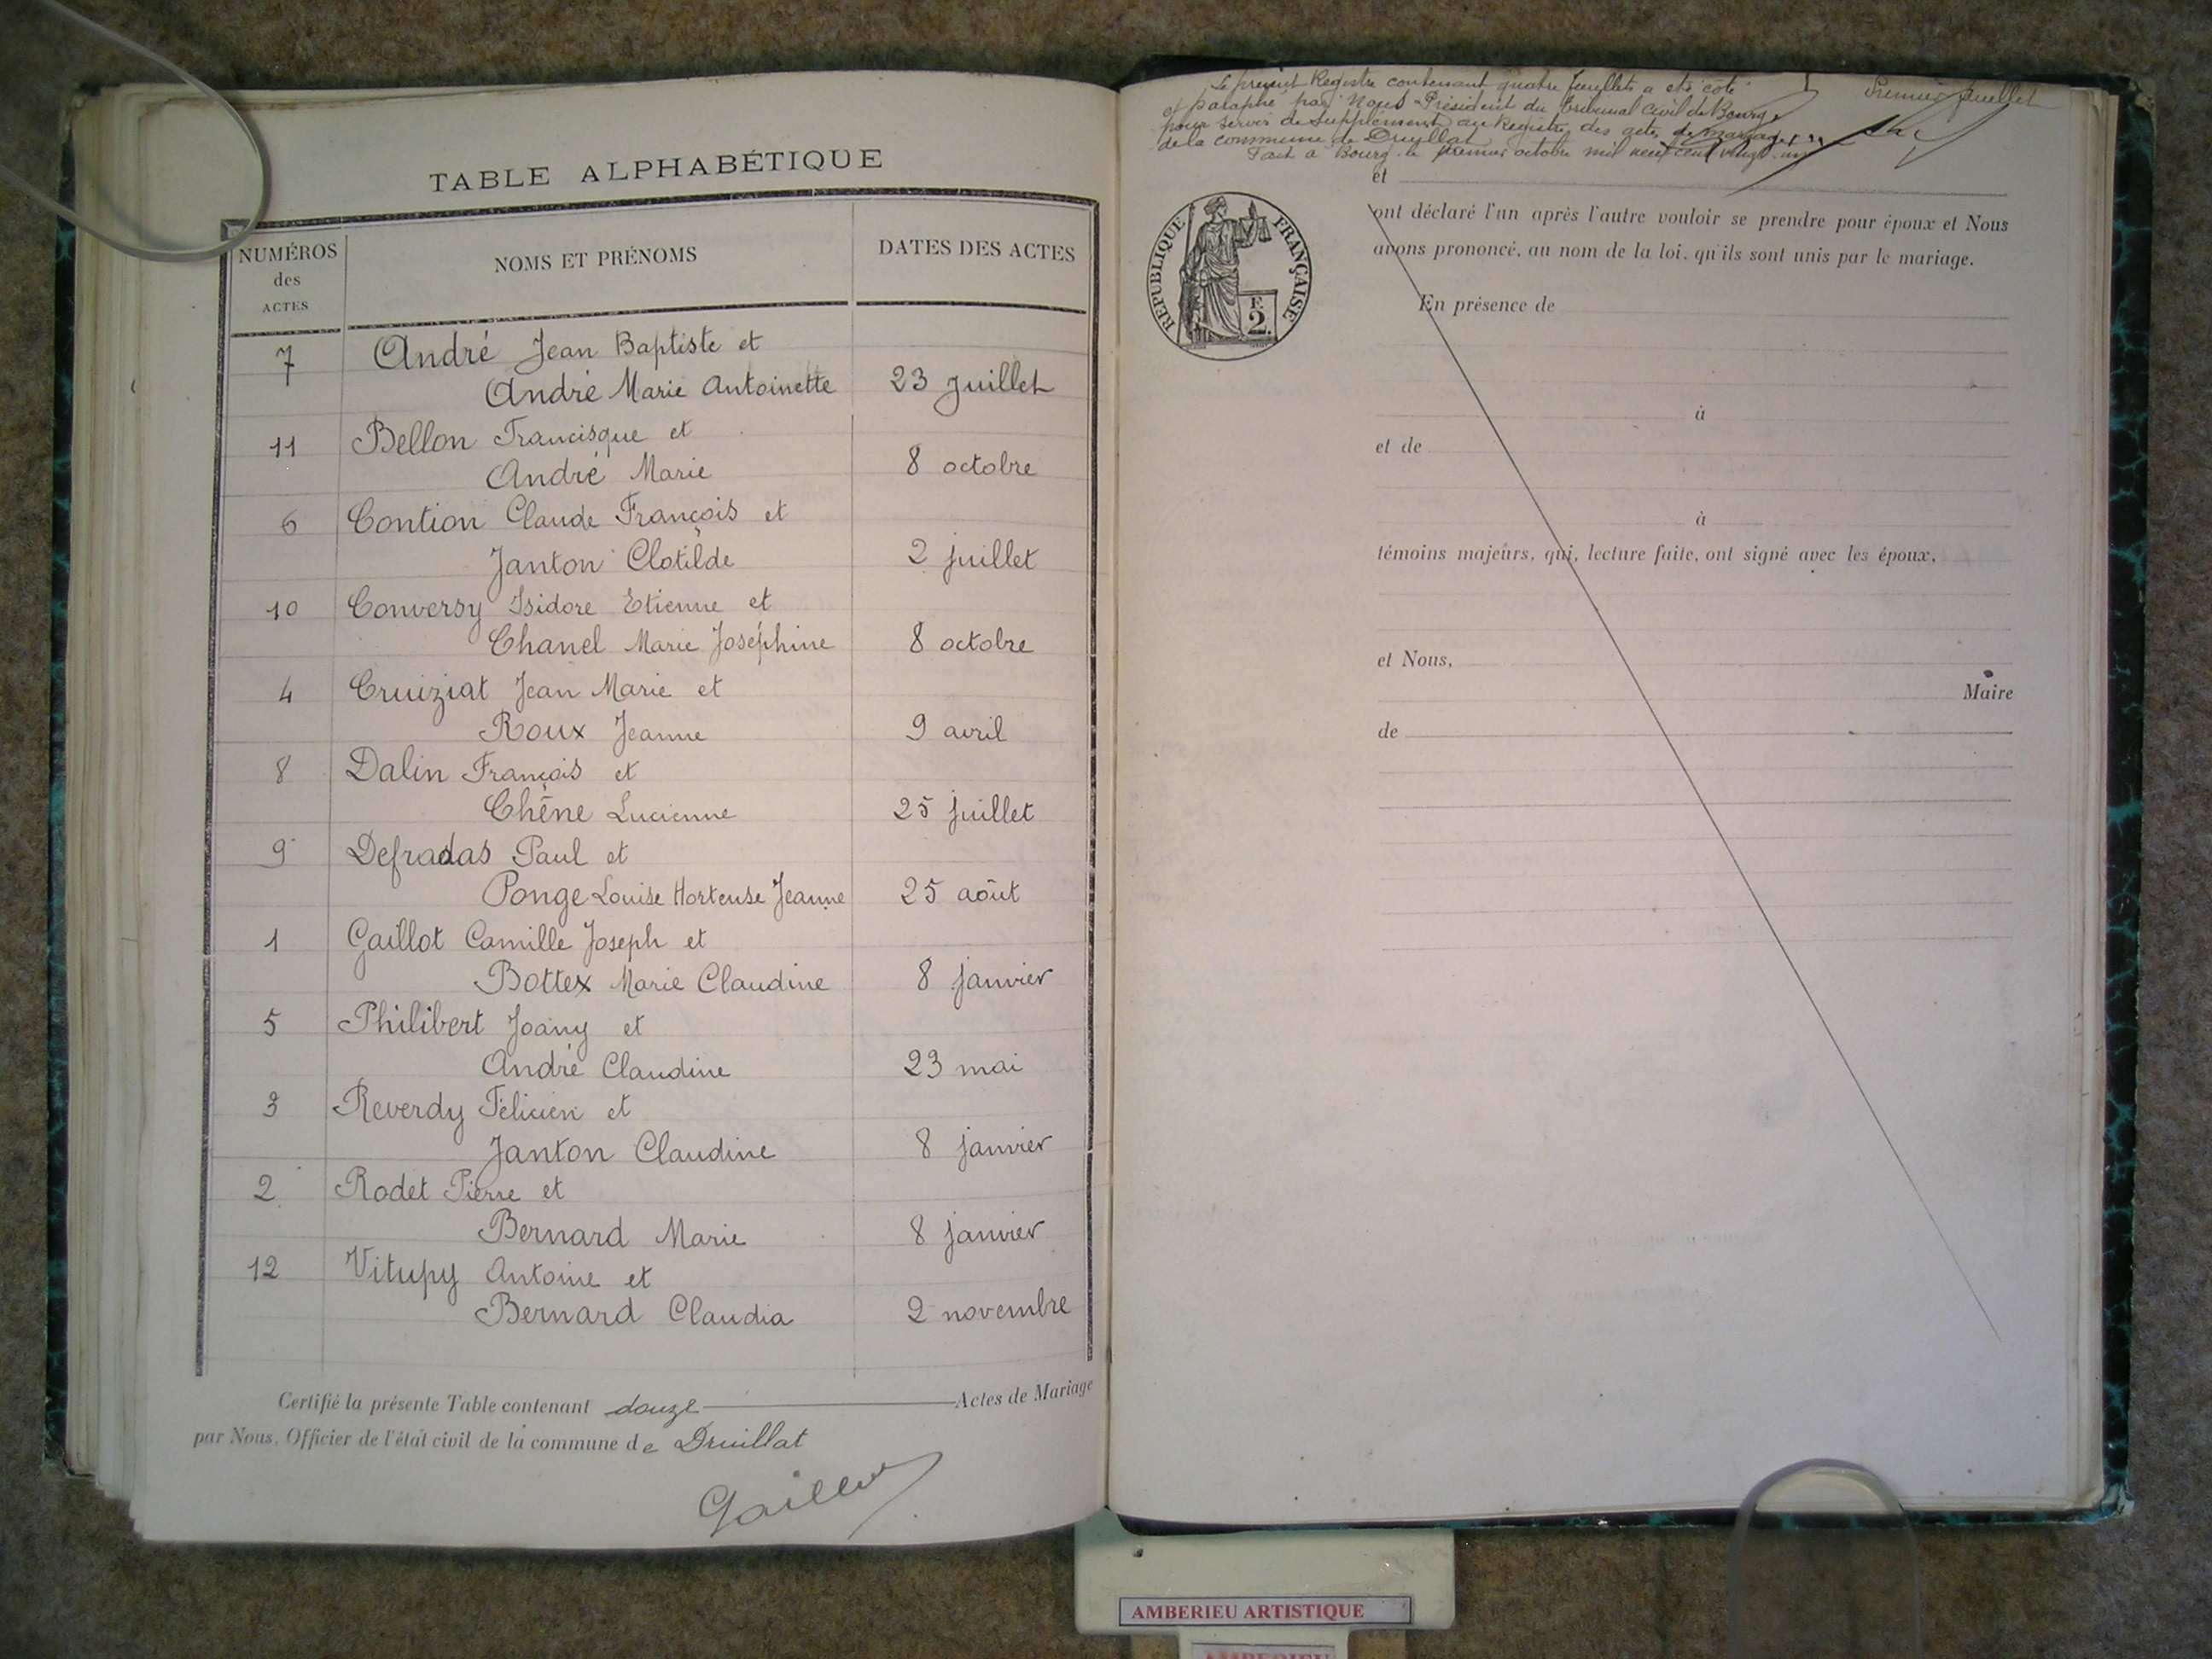 TABLE ALPHABÉTIQUE
NUMÉROS des ACTES
NOMS ET PRÉNOMS
DATES DES ACTES
7 André Jean Baptiste et
André Marie Antoinette 23 juillet
11 Bellon Francisque et
André Marie 8 octobre
6 Contion Claude François et
Janton Clotilde 2 juillet
10 Conversy Isidore Etienne et
Chanel Marie Joséphine 8 octobre
4 Cruiziat Jean Marie et
Roux Jeanne 9 avril
8 Dalin François et
Chêne Lucienne 25 juillet
9 Defradas Paul et
Ponge Louise Hortense Jeanne 25 août
1 Gaillot Camille Joseph et
Bottex Marie Claudine 8 janvier
5 Philibert Joany et
André Claudine 23 mai
3 Reverdy Félicien et
Janton Claudine 8 janvier
2 Rodet Pierre et
Bernard Marie 8 janvier
12 Vitupy Antoine et
Bernard Claudia 2 novembre
Certifié la présente Table contenant douze Actes de Mariage
par Nous, Officier de l'état civil de la commune de Druillat
Le présent Registre contenant quatre feuillets a été coté
et paraphé par Nous Président du Tribunal Civil de Bourg
pour servir de supplément au Registre des actes de mariages
de la commune de Druillat
Fait à Bourg le premier octobre mil neuf cent vingt un
1 Premier feuillet
RÉPUBLIQUE FRANÇAISE
F.
2.
et
ont déclaré l'un après l'autre vouloir se prendre pour époux et Nous
avons prononcé, au nom de la loi, qu'ils sont unis par le mariage.
En présence de
à
et de
à
témoins majeurs, qui, lecture faite, ont signé avec les époux,
et Nous,
Maire
de
AMBERIEU ARTISTIQUE
AMBERIEU